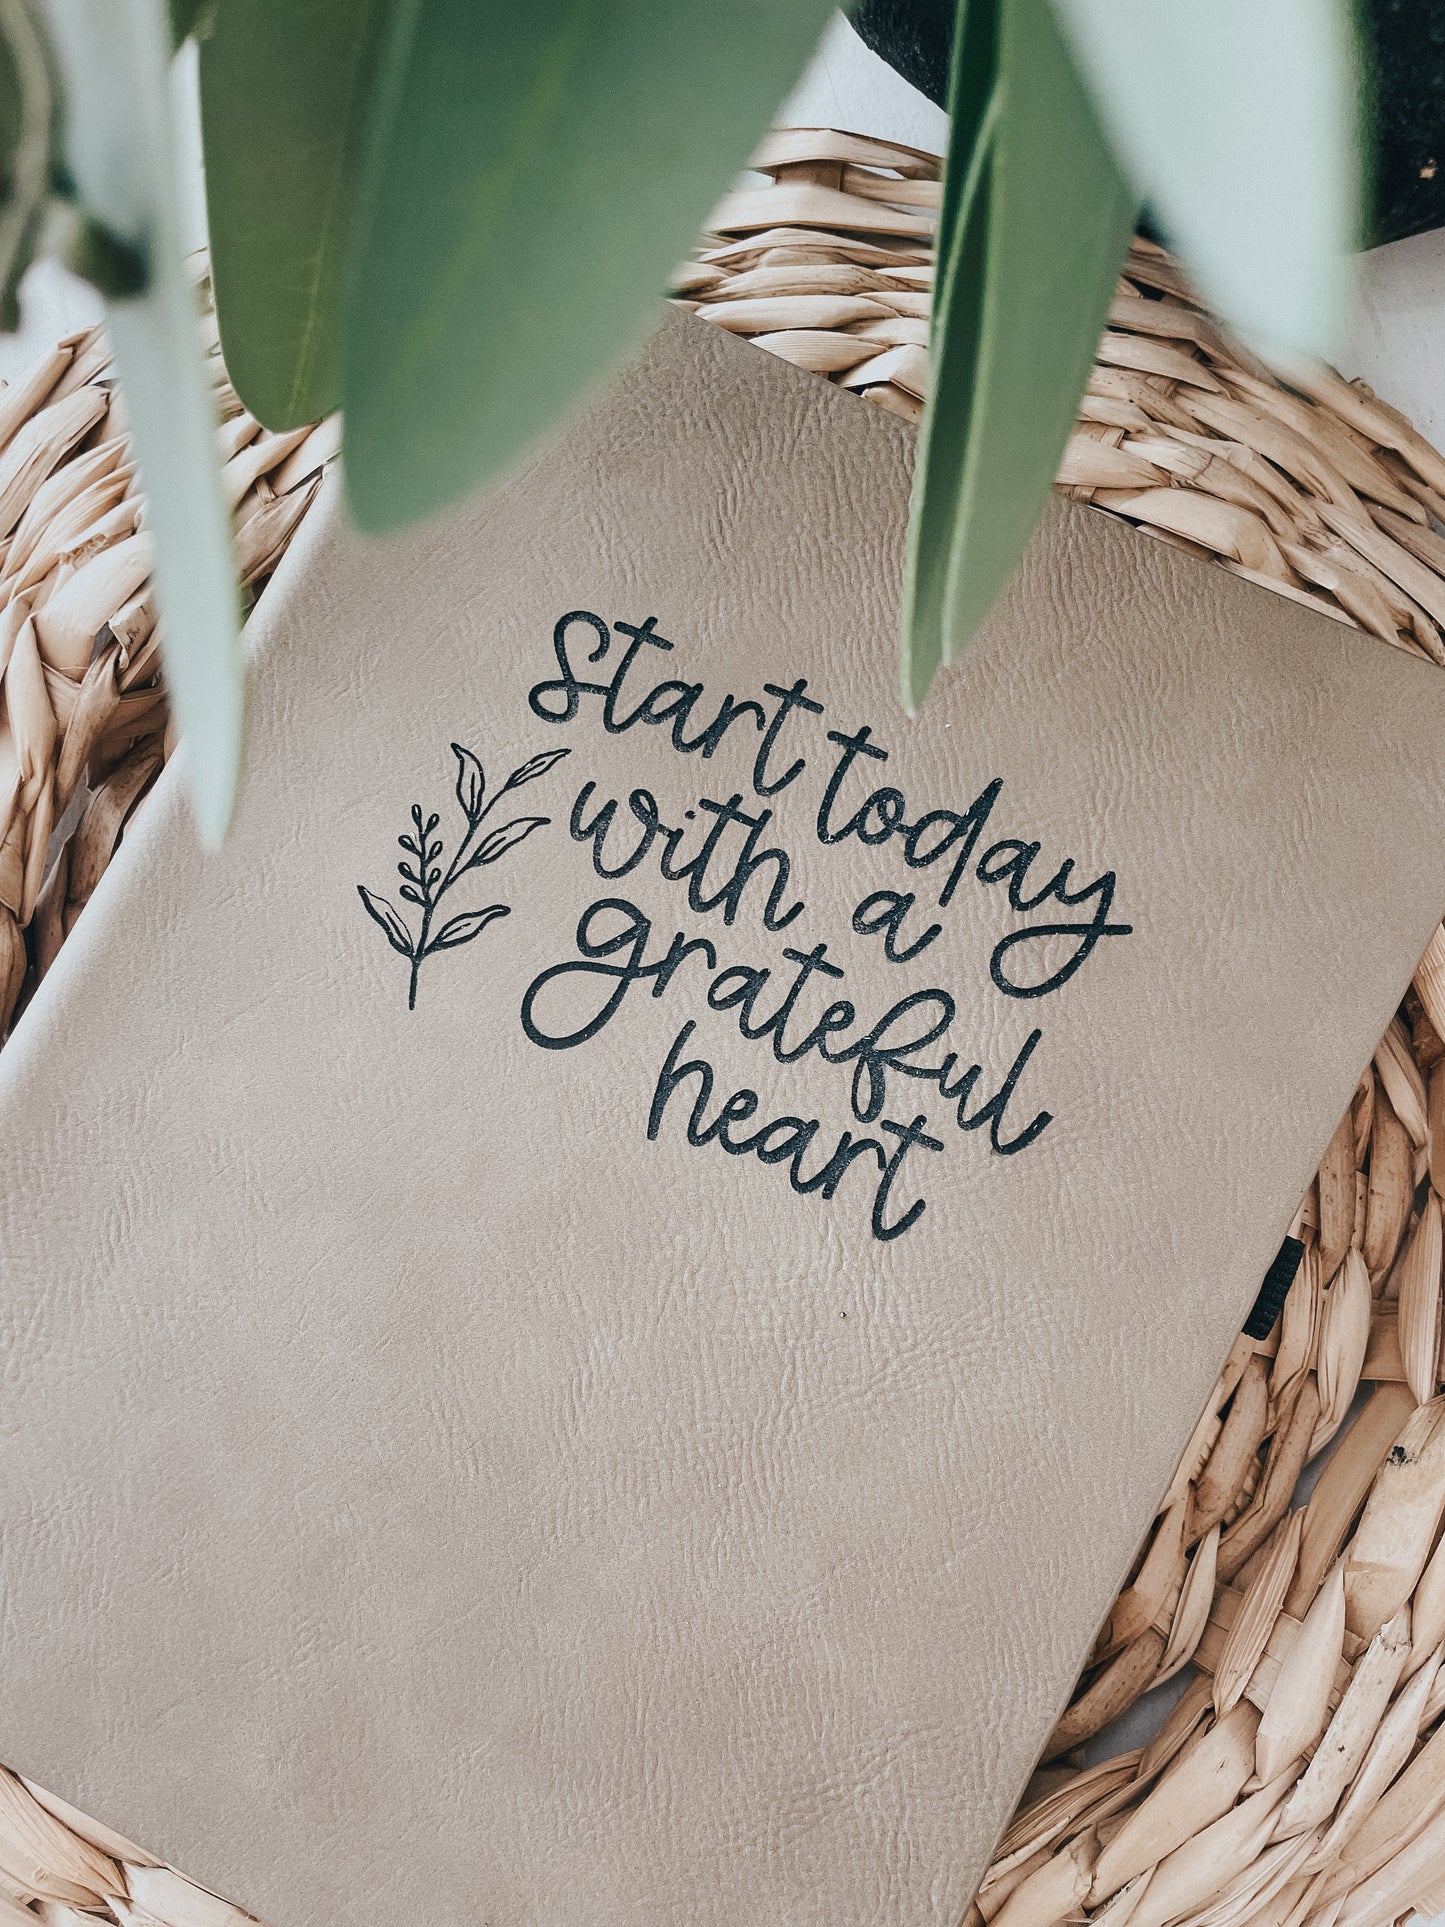 Start today
with a
grateful
heart